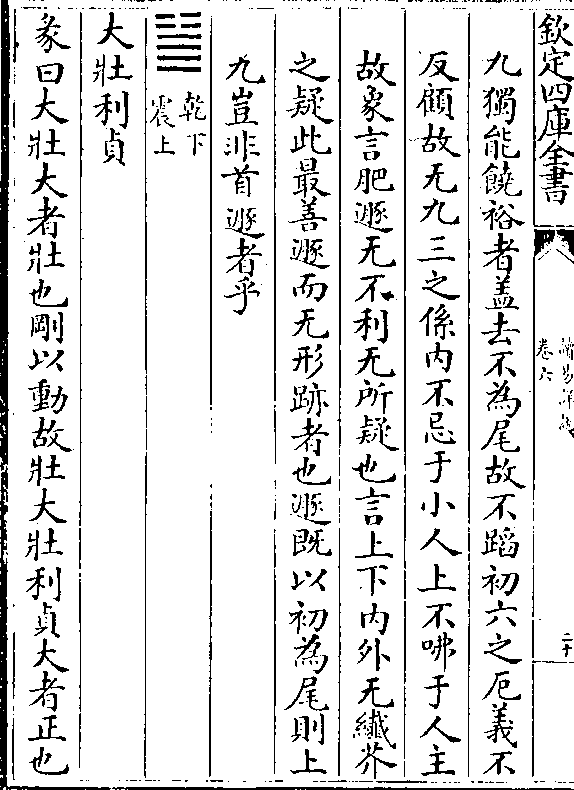 欽定四庫全書
卷六
二十
九獨能饒裕者蓋去不為尾故不蹈初六之厄義不
反顧故无九三之係内不忌于小人上不咈于人主
故象言肥遯无不利无所疑也言上下内外无纖芥
之疑此最善遯而无形跡者也遯既以初為尾則上
九豈非首遯者乎
䷡
乾下
震上
大壯利貞
彖曰大壯大者壯也剛以動故壯大壯利貞大者正也